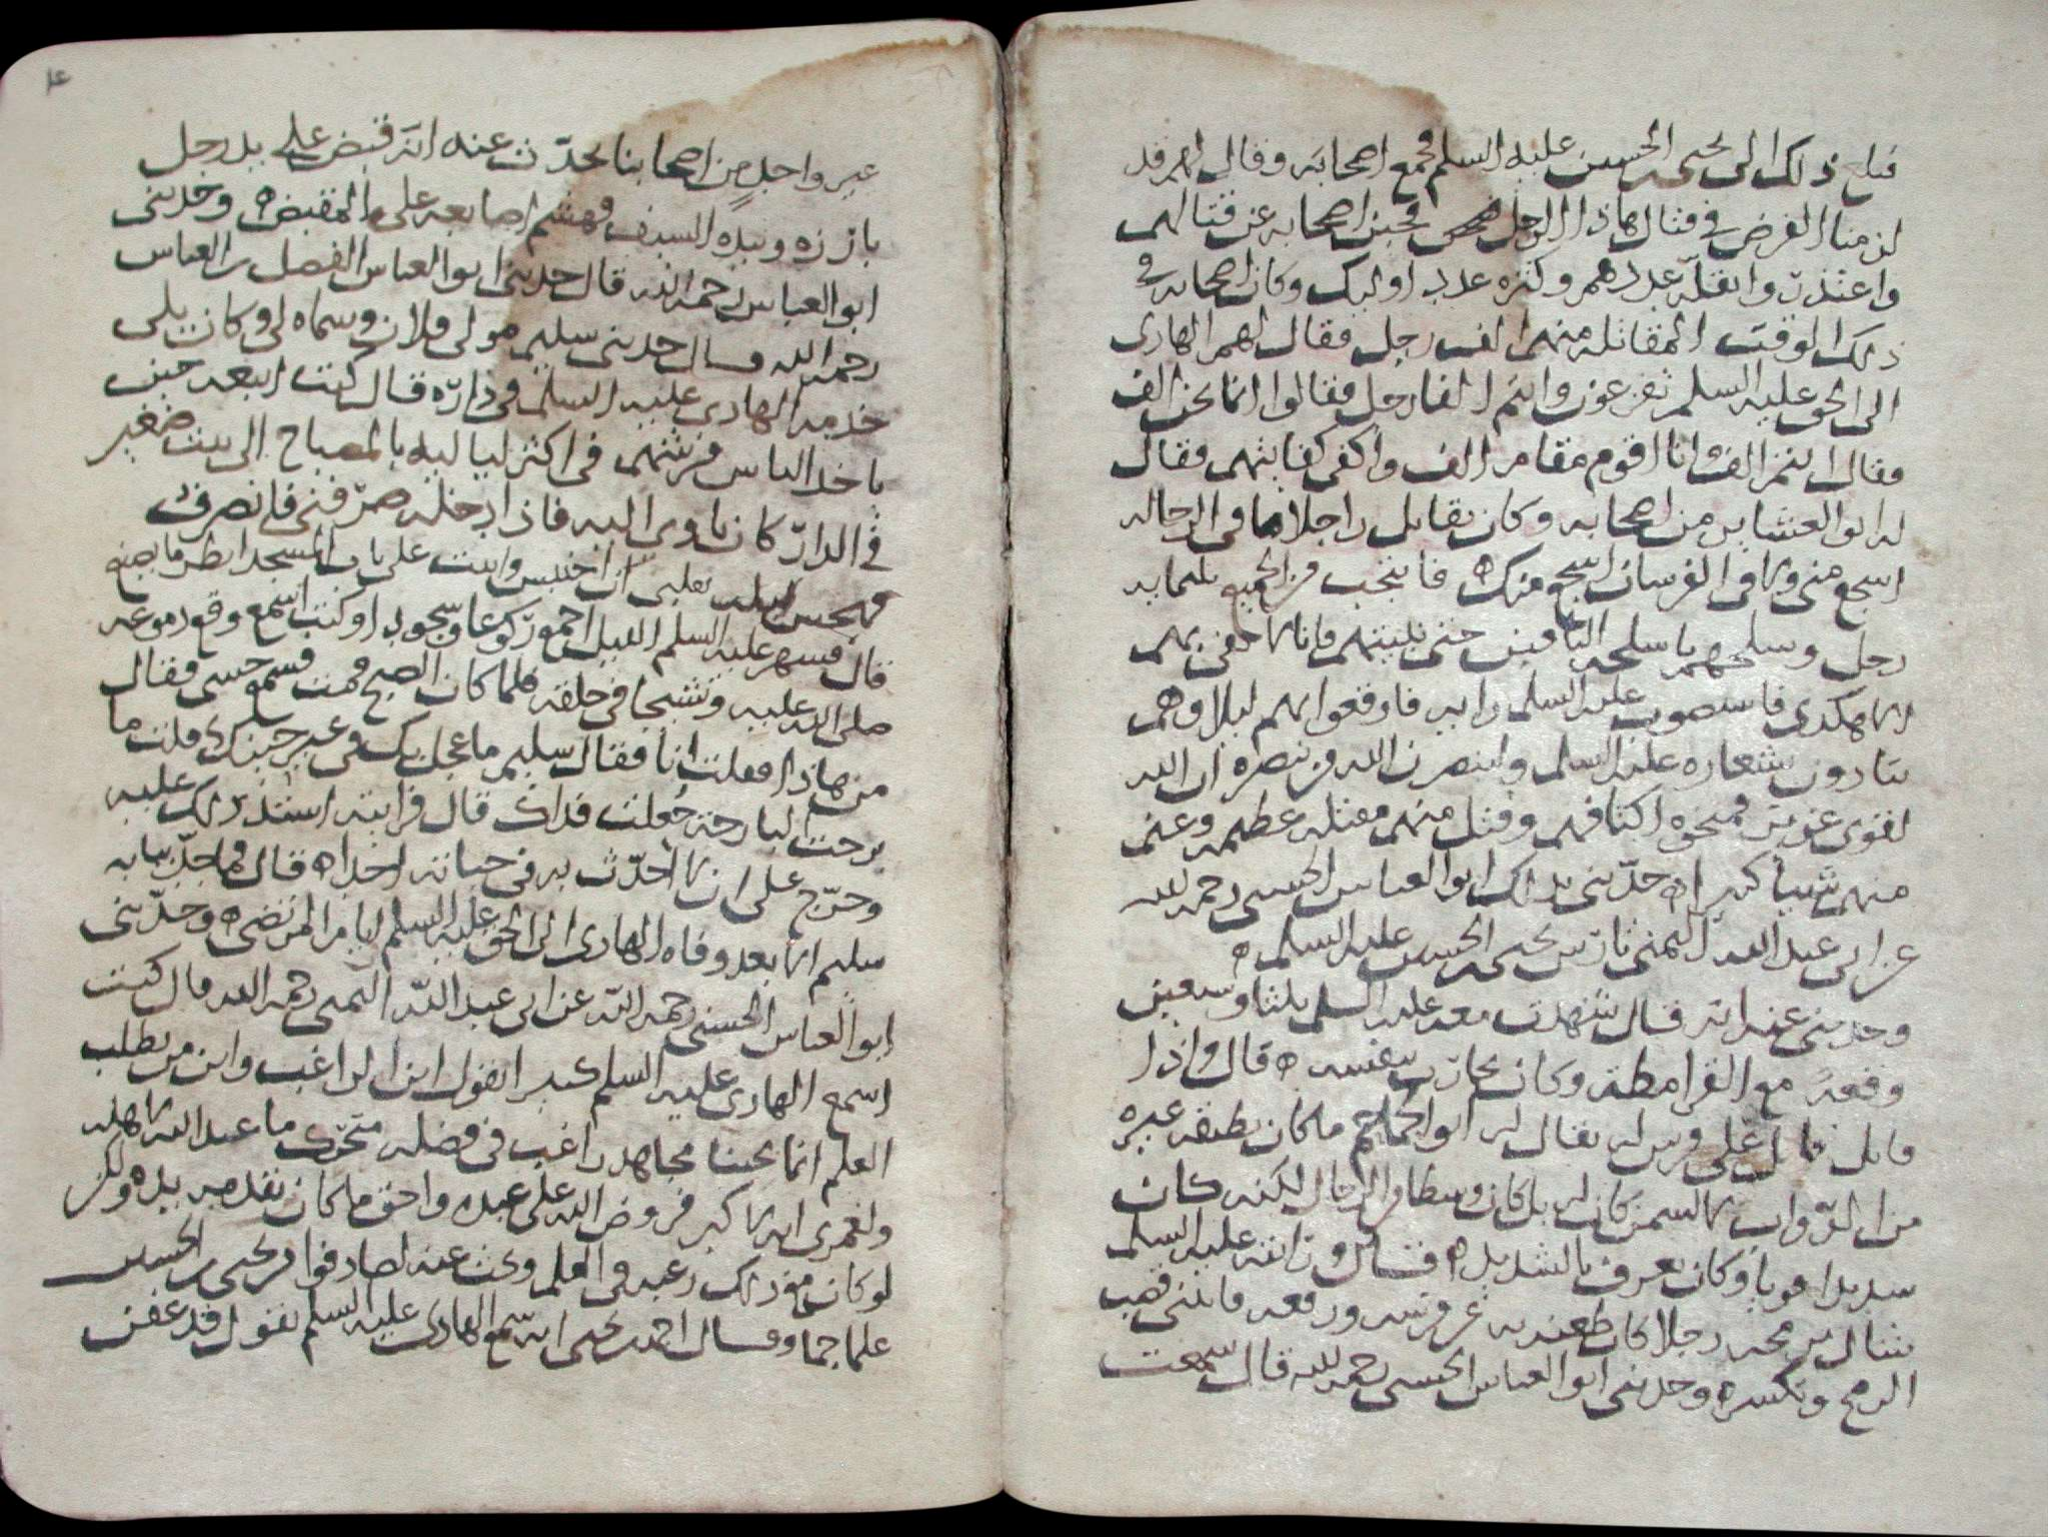 فبلغ ذلك الى يحيى بن الحسين عليه السلم فجمع اصحابه وقال لهم قد
لزمنا الفرض في قتال هاذا الرجل فجبن اصحابه عن قتالهم
واعتذروا بقلة عددهم وكثره عدد اوليك وكان اصحابه في
ذلك الوقت المقاتله منهم الف رجل فقال لهم الهادى
الى الحق عليه السلم تفزعون وانتم الفا رجل فقالوا انما نحن الف
فقال انتم الف وانا اقوم مقام الف واكفى كفايتهم فقال
له ابو العشاير من اصحابه وكان يقاتل راجلا ما في الرجاله
اسجع منى ولا في الفرسان اسجع منك فانتخب من الجميع ثلثمايه
رجل وسلحهم باسلحه الباقين حتى نبيتهم فانا لا نفى بهم
الا هكدى فاستصوب عليه السلم رايه فاوقعوا بهم ليلا وهم
ينادون بشعاره عليه السلم ولينصرن الله من ينصره ان الله
لقوى عزيز فمنحوه اكتافهم وقتل منهم مقتله عظيمه وغنم
منهم شيا كبيرا حدثنى بذلك ابو العباس الحسنى رحمه الله
عن ابى عبد الله اليمنى فارس يحيى بن الحسين عليه السلم
وحدثنى عنه انه قال شهدت معه عليه السلم ثلثا وسبعين
وقعه مع القرامطة وكان يحارب بنفسه قال واذا
قاتل قاتل على فرس له يقال له ابو الجماجم ما كان يطيقه غيره
من الدواب لا لسمن كان له بل كان وسطا من الرجال لكنه كان
سديدا قويا وكان يعرف بالشديد قال ورايته عليه السلم
شال برمحه رجلا كان طعنه به عن فرسه ورفعه فانثنى قصب
الرمح وتكسره وحدثنى ابو العباس الحسنى رحمه الله قال سمعت
غير واحد من اصحابنا يحدث عنه انه قبض على يد رجل
بارزه وبيده السيف فهشم اصابعه على المقبض وحدثنى
ابو العباس رحمه الله قال حدثنى ابو العباس الفضل بن العباس
رحمه الله قال حدثنى سليم مولى فلان وسماه لى وكان يلى
خدمه الهادى عليه السلم في داره قال كنت اتبعه حين
ياخد الناس فرشهم فى اكثر لياليه بالمصباح الى بيت صغير
في الدار كان ياوى اليه فاذا دخله صرفنى فانصرف
فهجس ليله بقلبى ان احتبس وابيت على باب المسجد انظر ما يصنع
قال فسهر عليه السلم الليل اجمع ركوعا وسجودا وكنت اسمع وقع دموعه
صلى الله عليه ونشيجا في حلقه فلما كان الصبح قمت فسمع حسى فقال
من هاذا فقلت انا فقال سليم ما عجل بك في غير حينك قلت ما
برحت البارحة جعلت فداك قال فرايته اشتد ذلك عليه
وحرج على ان لا احدث به في حياته احدا قال فما حدثنا به
سليم الا بعد وفاه الهادى الى الحق عليه السلم ايام المرتضى وحدثنى
ابو العباس الحسنى رحمه الله عن ابى عبد الله اليمنى رحمه الله قال كنت
اسمع الهادى عليه السلم كثيرا يقول اين الراغب واين من يطلب
العلم انما يحبنا مجاهد راغب في فضله متحرك ما عند الله لاهله
ولعمرى انه لاكبر فروض الله على عبده واحق ما كان يقدمه بيده ولكن
لو كان مع ذلك رغبه في العلم وبحث عنه لصادفوا من يحيى بن الحسين
علما جما وقال احمد بن يحيى انه سمع الهادى عليه السلم يقول قد عفن